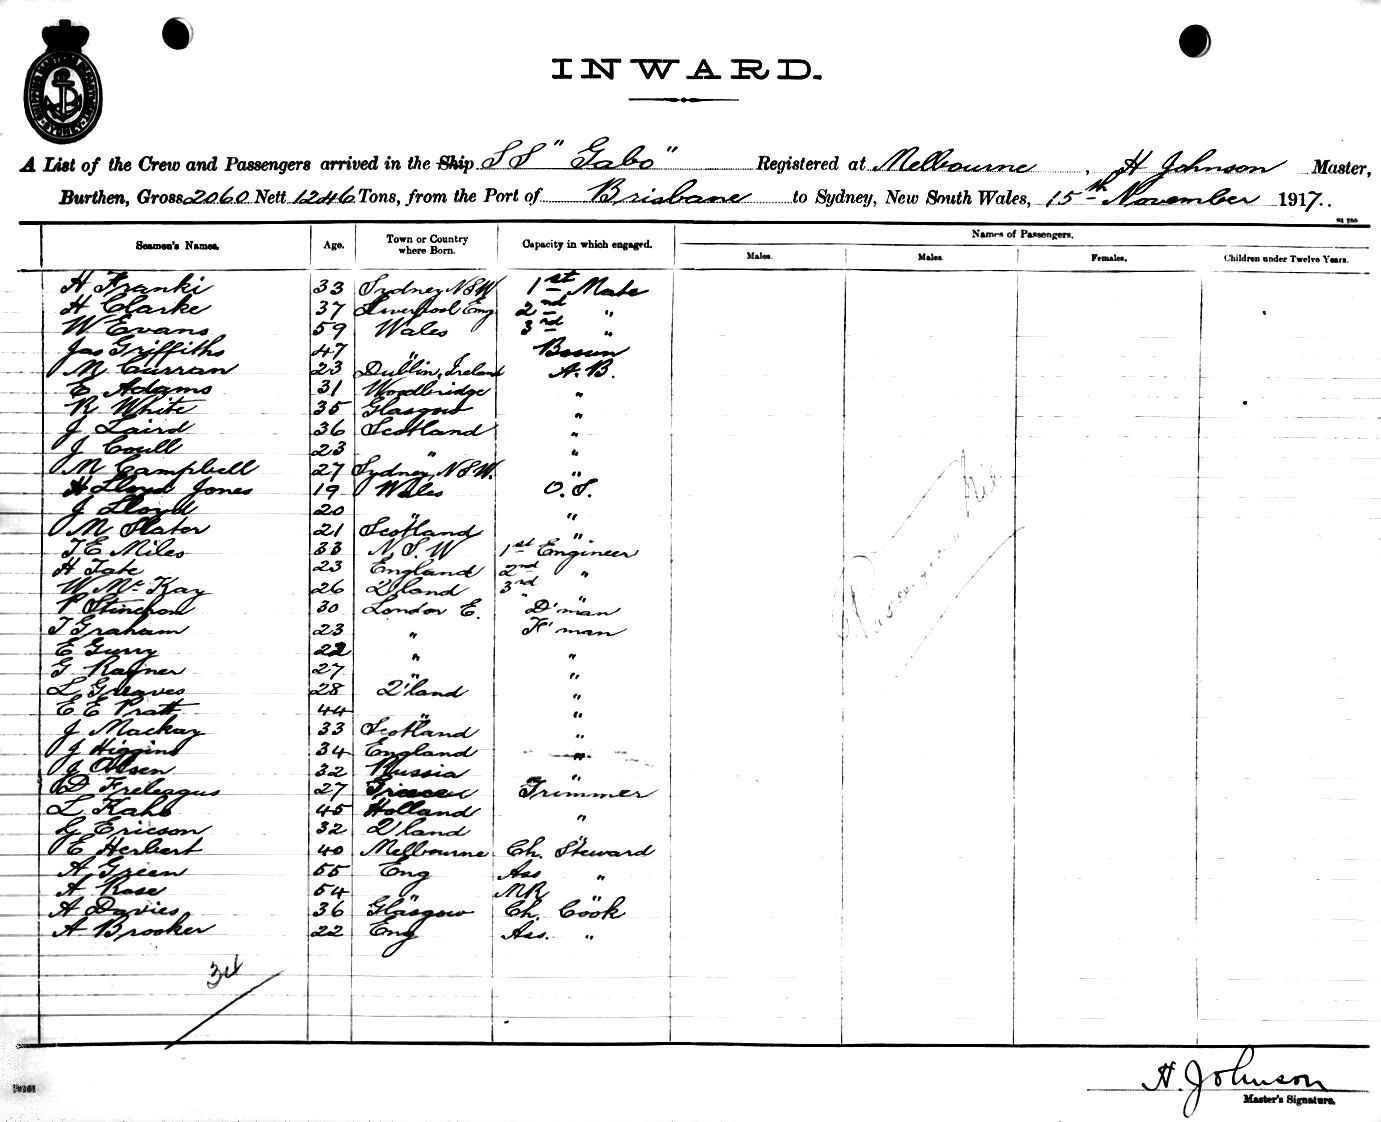 INWARD.
A List of the Crew and Passengers arrived in the Ship SS "Gabo" Registered at Melbourne, H Johnson Master,
Burthen, Gross 2060 Nett 1246 Tons, from the Port of Brisbane to Sydney, New South Wales, 15th November 1917.
Names of Passengers.
Seamen's Names. Age. Town or Country where Born. Capacity in which engaged. Males. Males. Females. Children under Twelve Years.
H Franki 33 Sydney NSW 1st Mate
H Clarke 37 Liverpool Eng 2nd "
W Evans 59 Wales 3rd "
Jas Griffiths 47 " Bosun
M Curran 23 Dublin, Ireland A.B.
E Adams 31 Woodbridge "
R White 35 Glasgow "
J Laird 36 Scotland "
J Coull 23 " "
M Campbell 27 Sydney, NSW. "
H Lloyd Jones 19 Wales O.S.
J Lloyd 20 " "
M Slater 21 Scotland "
T E Miles 33 N.S.W 1st Engineer
H Tate 23 England 2nd "
W McKay 26 Q'land 3rd "
30 London E. D'man
T Graham 23 " F'man
E Gurry 22 " "
G Rayner 27 " "
L Greaves 28 Q'land "
E E Pratt 44 " "
J Mackay 33 Scotland "
J Higgins 34 England "
J Olsen 32 Russia "
D Freleagus 27 Trimmer
L Kahs 45 Holland "
G Ericson 32 Q'land "
E Herbert 40 Melbourne Ch. Steward
A Green 55 Eng Ass "
A Rose 54 " MR "
A Davies 36 Glasgow Ch. Cook
A Brooker 22 Eng Ass. "
Passengers Nil
34
H. Johnson
Master's Signature.